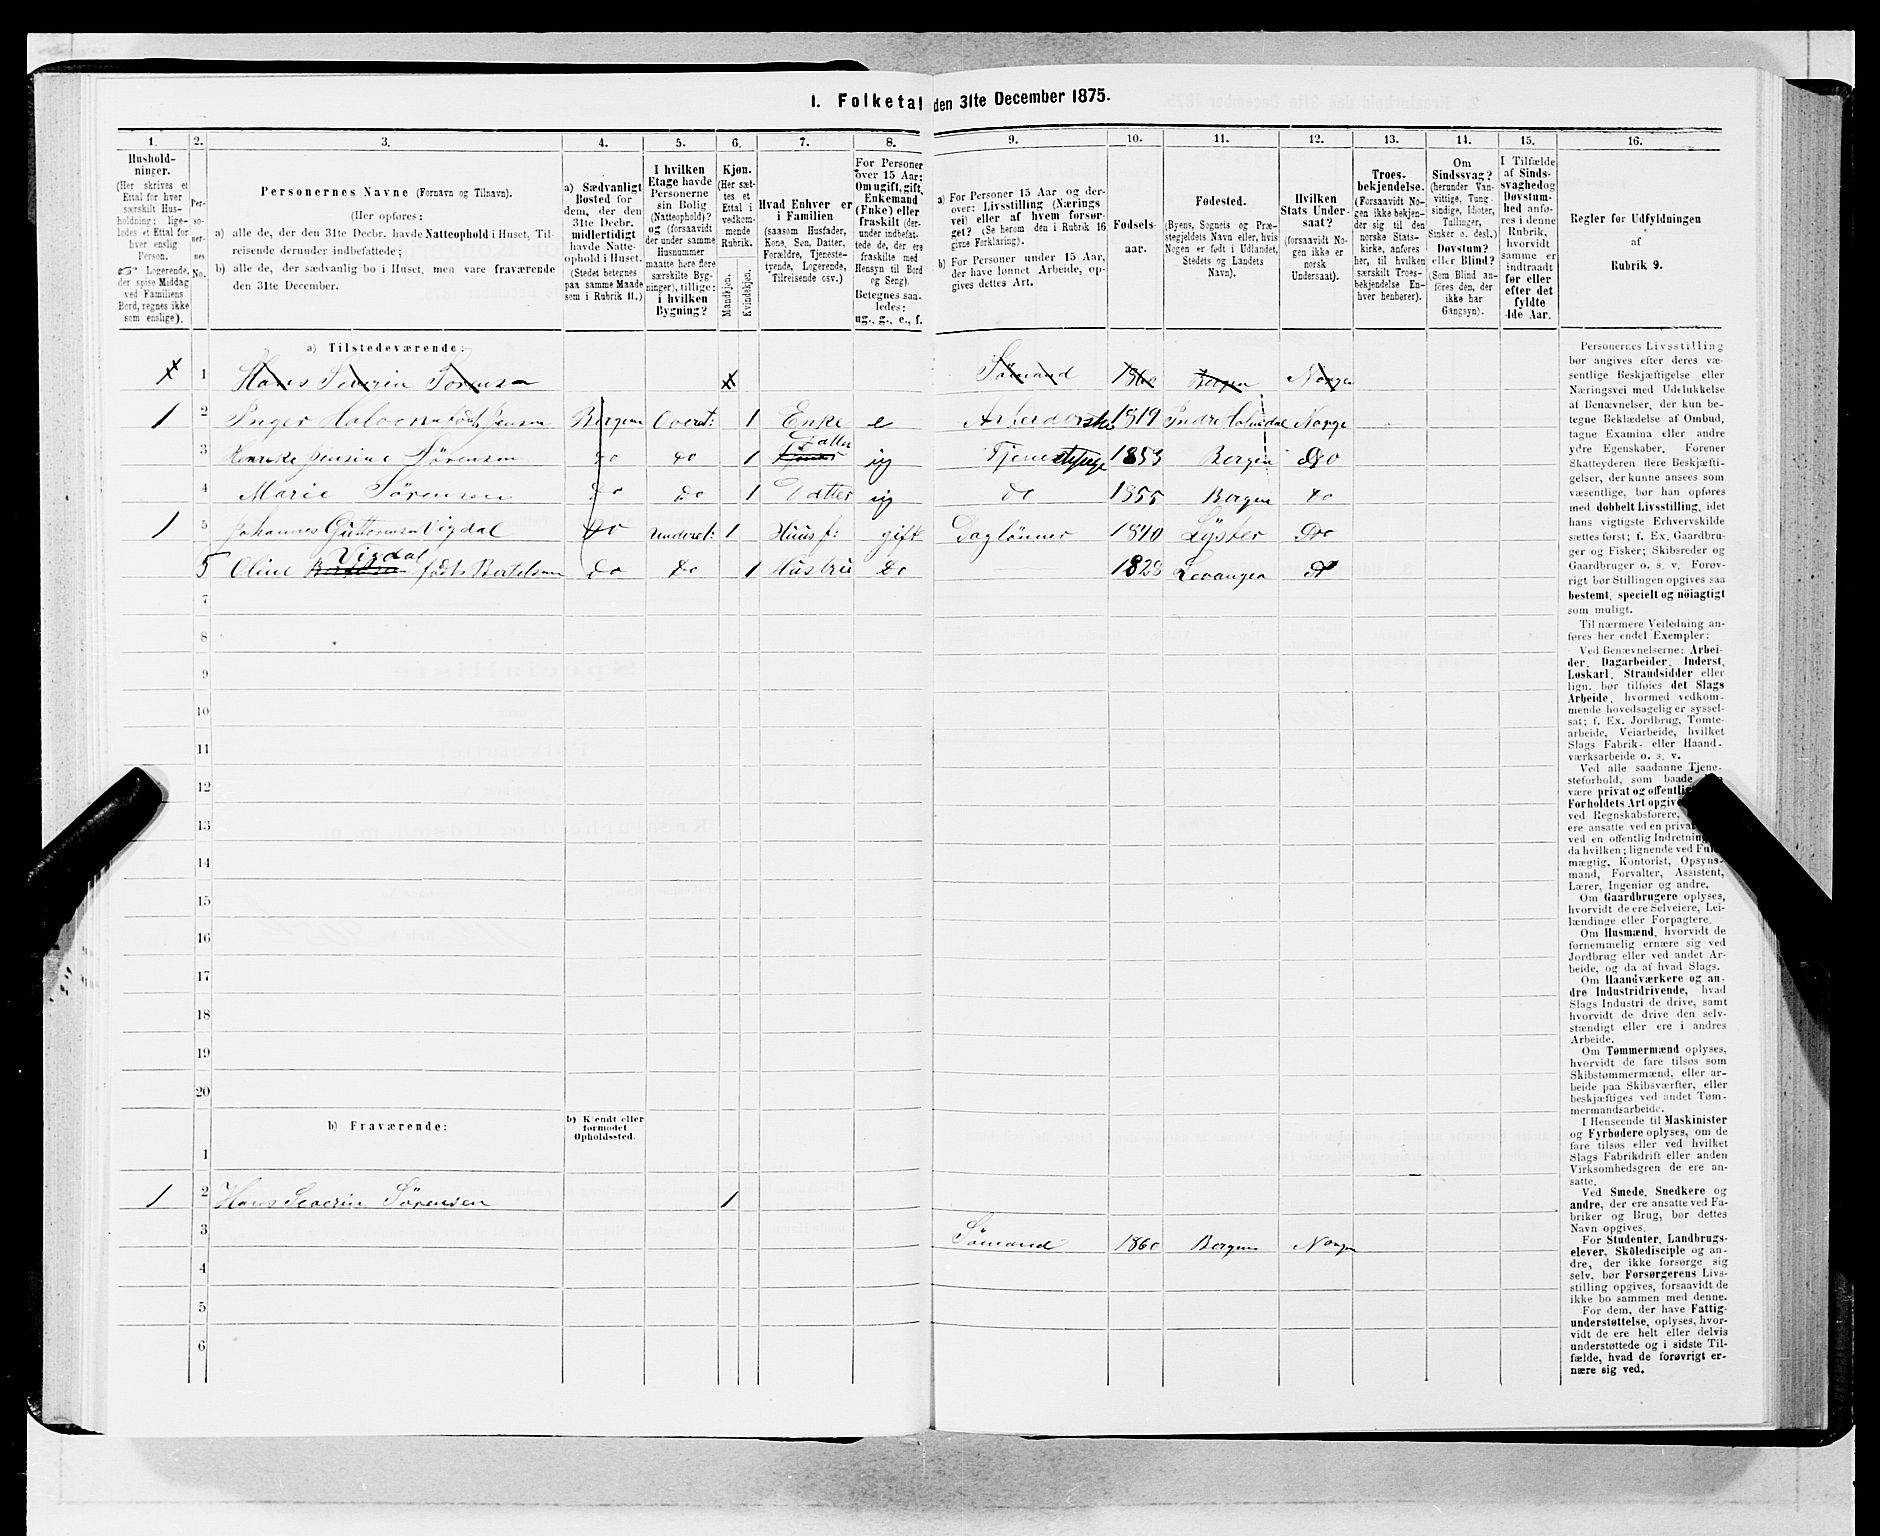 1. Folketal den 31te December 1875.
1.
Hushold-
ninger.
(Her skrives et
Ettal for hver
særskilt Hus-
holdning; lige-
ledes et Ettal for
hver enslig
Person.
☞ Logerende,
der spise Middag
ved Familiens
Bord, regnes ikke
som enslige).
2.
Per-
so-
ner-
nes
No.
3.
Personernes Navne (Fornavn og Tilnavn).
(Her opføres:
a) alle de, der den 31te Decbr. havde Natteophold i Huset, Til-
reisende derunder indbefattede;
b) alle de, der sædvanlig bo i Huset, men vare fraværende
den 31te December.
4.
a) Sædvanligt
Bosted for
dem, der den
31te Decbr.
midlertidigt
havde Natte-
ophold i Huset.
(Stedet betegnes
paa samme Maade
som i Rubrik 11.)
5.
I hvilken
Etage havde
Personerne
sin Bolig
(Natteophold)?
og (forsaavidt
der under samme
Husnummer
maatte høre flere
særskilte Byg-
ninger), tillige:
i hvilken
Bygning?
6.
Kjøn.
(Her sæt-
tes et
Ettal i
vedkom-
mende
Rubrik.
Mandkjøn.
Kvindekjøn.
7.
Hvad Enhver er
i Familien
(saasom Husfader,
Kone, Søn, Datter,
Forældre, Tjeneste-
tyende, Logerende,
Tilreisende csv.)
8.
For Personer
over 15 Aar:
Om ugift, gift,
Enkemand
(Enke) eller
fraskilt (der-
under indbefat-
tede de, der ere
fraskilte med
Hensyn til Bord
og Seng).
Betegnes saa-
ledes:
ug., g., e., f.
9.
a) For Personer 15 Aar og der-
over: Livsstilling (Nærings
vei) eller af hvem forsør-
get? (Se herom den i Rubrik 16
givne Forklaring).
b) For Personer under 15 Aar,
der have lønnet Arbeide, op-
gives dettes Art.
10.
Fødsels-
aar.
11.
Fødested.
(Byens, Sognets og Præ-
stegjeldets Navn eller, hvis
Nogen er født i Udlandet,
Stedets og Landets
Navn).
12.
Hvilken
Stats Under-
saat?
(forsaavidt No-
gen ikke er
norsk
Undersaat).
13.
Troes-
bekjendelse.
(Forsaavidt No-
gen ikke bekjen-
der sig til den
norske Stats-
kirke, anføres
her, til hvilken
særskilt Troes-
bekjendelse En-
hver henhører).
14.
Om
Sindssvag?
(herunder Van-
vittige, Tung-
sindige, Idioter,
Tullinger,
Sinker o. desl.)
Døvstum?
eller Blind?
(Som Blind an-
føres den, der
ikke har
Gangsyn).
15.
I Tilfælde
af Sinds-
svaghed og
Døvstum-
hed anfø-
res i denne
Rubrik,
hvorvidt
samme er
indtraadt
før eller
efter det
fyldte
4de Aar.
16.
Regler for Udfyldningen
af
Rubrik 9.
a) Tilstedeværende:
1 Hans Severin Sørensen Sømand 1860 Bergen Norge
1 2 Inger Bergen Overet: 1 Enke e 1819 Indre Holmedal Norge
3 Jensine Sørensen do do 1 Datter ug 1853 Bergen do
4 Marie Sørensen do do 1 Datter ug do 1855 Bergen do
1 5 Johannes Guttormsen Vigdal do underet: 1 Huusf: gift Daglønner 1840 Lyster do
Vigdal
5 Oline født Bertelsen do do 1 Hustru do 1828 Levanger
7
8
9
10
11
12
13
14
15
16
17
18
19
20
b) Fraværende:
b) Kjendt eller
formodet
Opholdssted.
1
1 2 Hans Severin Sørensen 1
3 Sømand 1860 Bergen Norge
4
5
6
Personernes Livsstilling
bør angives efter deres væ-
sentlige Beskjæftigelse eller
Næringsvei med Udelukkelse
af Benævnelser, der kun be-
tegne Beklædelse af Ombud,
tagne Examina eller andre
ydre Egenskaber. Forener
Skatteyderen flere Beskjæfti-
gelser, der kunne ansees som
væsentlige, bør han opføres
med dobbelt Livsstilling, idet
hans vigtigste Erhvervskilde
sættes først; f. Ex. Gaardbru-
ger og Fisker; Skibsreder og
Gaardbruger o. s. v. Forøv-
rigt bør Stillingen opgives saa
bestemt, specielt og nöiagtigt
som muligt.
Til nærmere Veiledning an-
føres her endel Exempler:
Ved Benævnelserne: Arbei-
der, Dagarbeider, Inderst,
Løskarl, Strandsidder eller
lign. bør tilføies det Slags
Arbeide, hvormed vedkom-
mende hovedsagelig er syssel-
sat; f. Ex. Jordbrug, Tomte-
arbeide, Veiarbeide, hvilket
Slags Fabrik- eller Haand-
værksarbeide o. s. v.
Ved alle saadanne Tjene-
steforhold, som baade
være privat og offentlig
Forholdets Art opgives
ved Regnskabsførere,
ere ansatte ved en privat
ved en offentlig Indretning
da hvilken; lignende ved Ful-
mægtig, Kontorist, Opsyns-
mand, Forvalter, Assistent,
Lærer, Ingeniør og andre.
Om Gaardbrugere oplyses,
hvorvidt de ere Selveiere, Lei-
lændinge eller Forpagtere.
Om Husmænd, hvorvidt de
fornemmelig ernære sig ved
Jordbrug eller ved andet Ar-
beide, og da af hvad Slags.
Om Haandværkere og an-
dre Industridrivende, hvad
Slags Industri de drive, samt
hvorvidt de drive den selv-
stændigt eller ere i andres
Arbeide.
Om Tømmermænd oplyses,
hvorvidt de fare tilsøs som
Skibstømmermænd, eller ar-
beide paa Skibsværfter, eller
beskjæftiges ved andet Tøm-
mermandsarbeide.
I Henseende til Maskinister
og Fyrbødere oplyses, om de
fare tilsøs eller ved hvilket
Slags Fabrikdrift eller anden
Virksomhedsgren de ere an-
satte.
Ved Smede, Snedkere og
andre, der ere ansatte ved Fa-
briker og Brug, bør dettes
Navn opgives.
For Studenter, Landbrugs-
elever, Skoledisciple og an-
dre, der ikke forsørge sig
selv, bør Forsørgerens Livs-
stilling opgives, forsaavidt de
ikke bo sammen med denne.
For dem, der have Fattig-
understøttelse, oplyses, hvor-
vidt de ere helt eller delvis
understøttede og i sidste Til-
fælde, hvad de forøvrigt er-
nære sig ved.